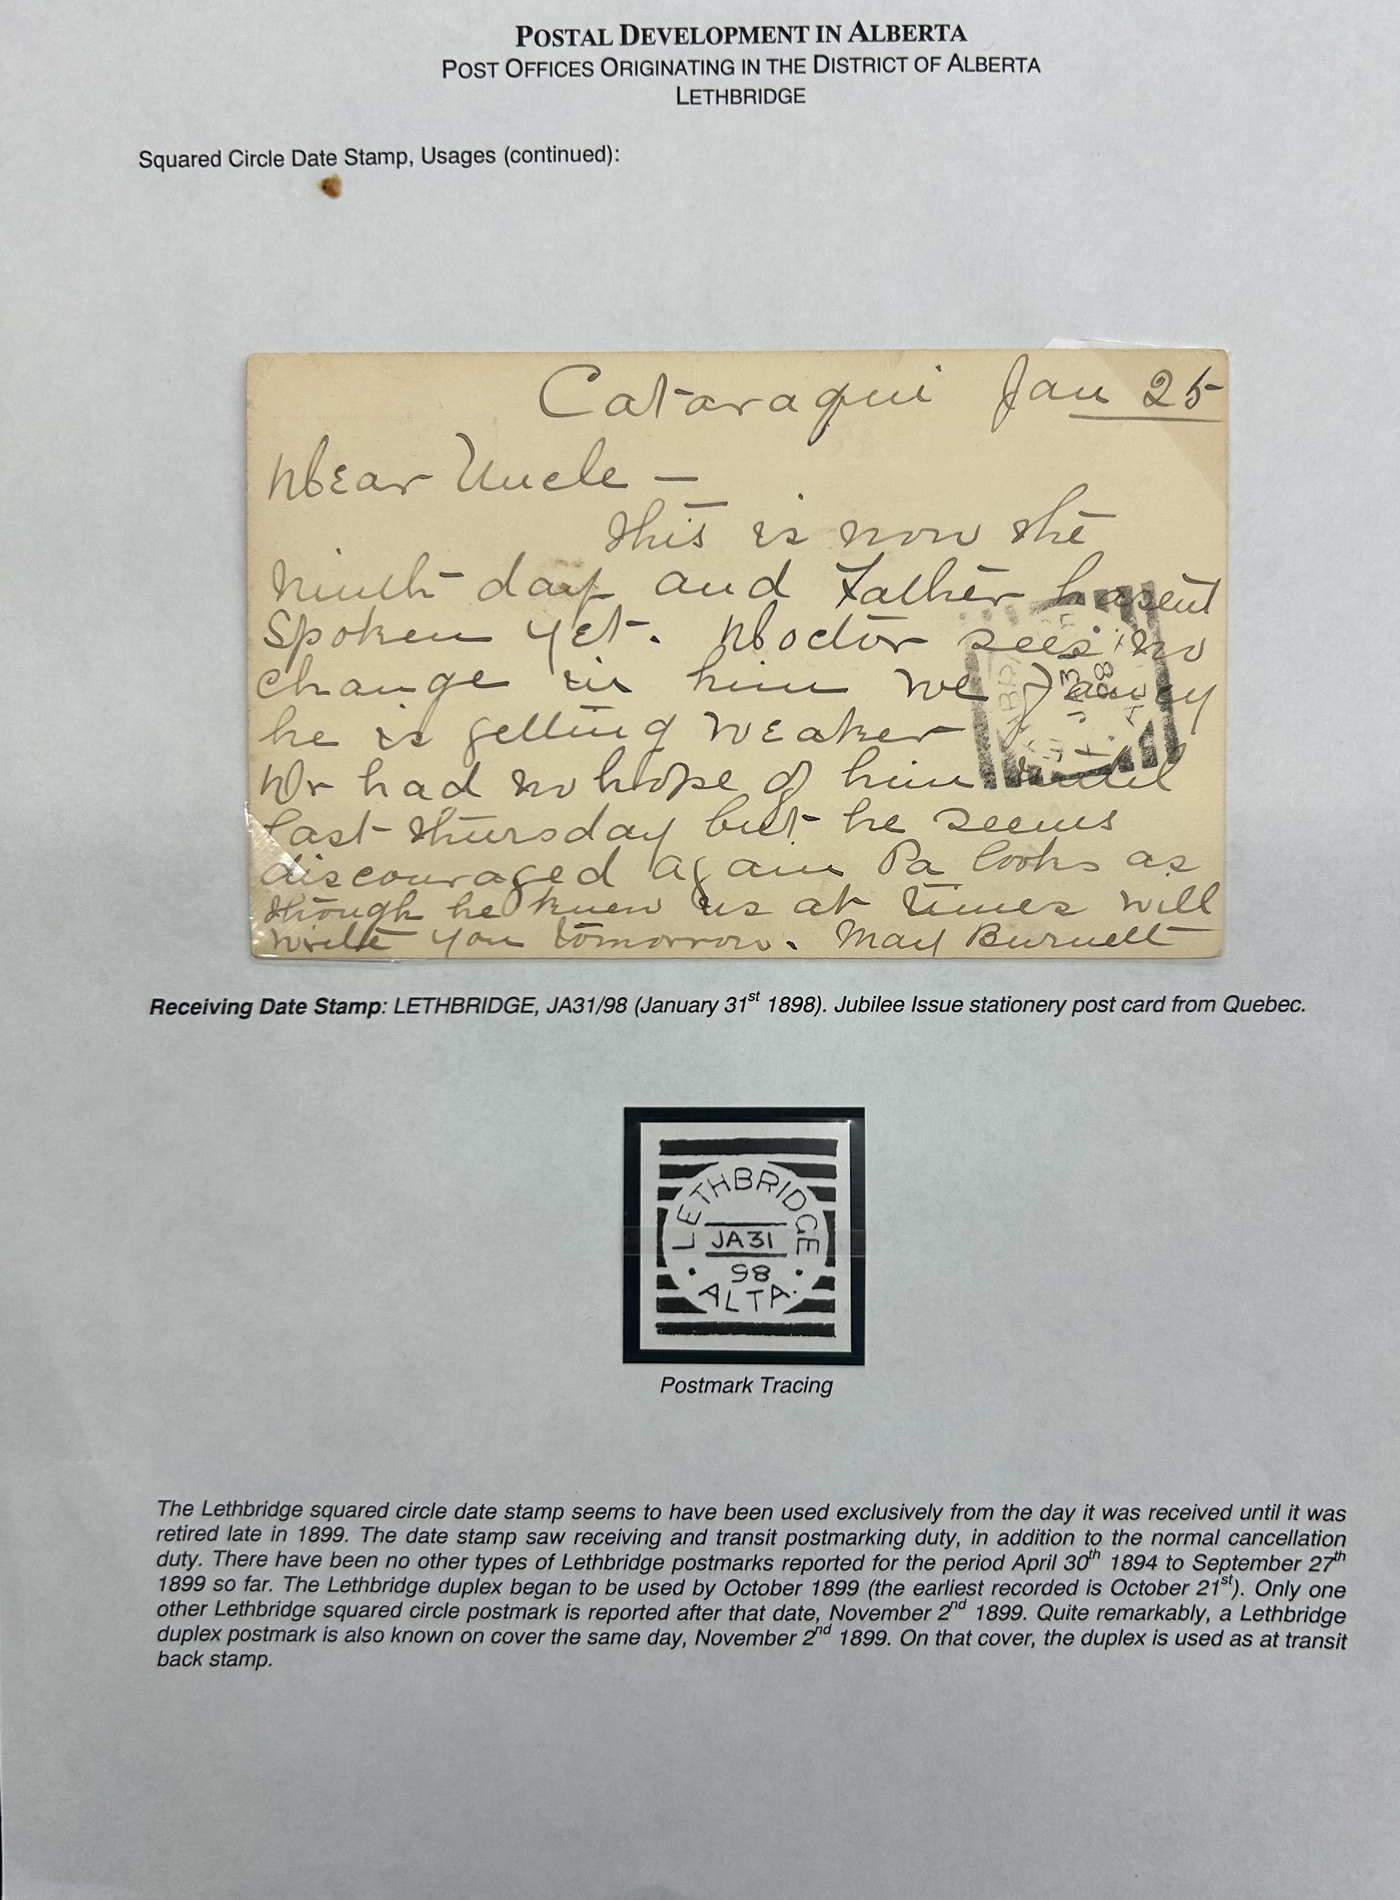 POSTAL DEVELOPMENT IN ALBERTA
POST OFFICES ORIGINATING IN THE DISTRICT OF ALBERTA
LETHBRIDGE
Squared Circle Date Stamp, Usages (continued):
Cataraqui Jan 25
Dear Uncle —
This is now the
ninth day and Father hasent
spoken yet. Doctor sees no
change in him we fancy
he is getting weaker
Dr had no hope of him until
last thursday but he seems
discouraged again Pa looks as
though he knew us at times will
write you tomorrow. May Burnett
JA 3
98
Receiving Date Stamp: LETHBRIDGE, JA31/98 (January 31st 1898). Jubilee Issue stationery post card from Quebec.
LETHBRIDGE
JA31
98
ALTA.
Postmark Tracing
The Lethbridge squared circle date stamp seems to have been used exclusively from the day it was received until it was
retired late in 1899. The date stamp saw receiving and transit postmarking duty, in addition to the normal cancellation
duty. There have been no other types of Lethbridge postmarks reported for the period April 30th 1894 to September 27th
1899 so far. The Lethbridge duplex began to be used by October 1899 (the earliest recorded is October 21st). Only one
other Lethbridge squared circle postmark is reported after that date, November 2nd 1899. Quite remarkably, a Lethbridge
duplex postmark is also known on cover the same day, November 2nd 1899. On that cover, the duplex is used as at transit
back stamp.